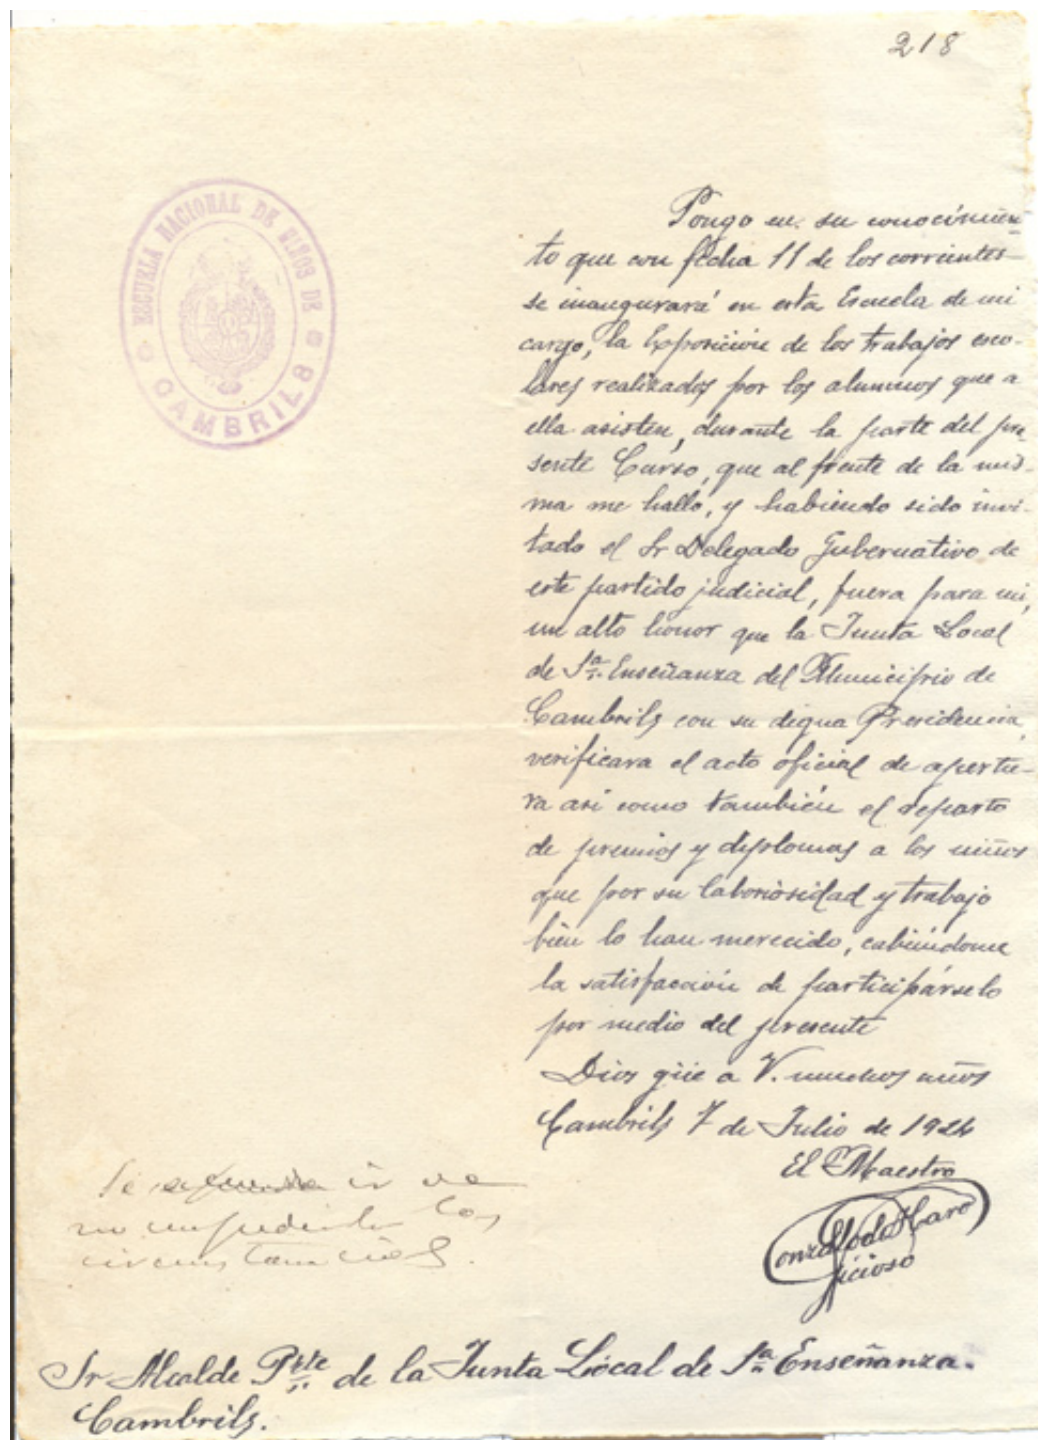 218
ESCUELA NACIONAL DE NIÑOS DE
CAMBRILS
Pongo en su conocimien
to que con fecha 11 de los corrientes
se inaugurará en esta Escuela de mi
cargo, la Exposición de los trabajos esco-
lares realizados por los alumnos que a
ella asisten, durante la parte del pre
sente Curso, que al frente de la mis-
ma me hallo, y habiendo sido invi-
tado el Sr Delegado Gubernativo de
este partido judicial, fuera para mi,
un alto honor que la Junta Local
de 1ª. Enseñanza del Municipio de
Cambrils con su digna Presidencia,
verificara el acto oficial de apertu-
ra así como también el reparto
de premios y diplomas a los niños
que por su laboriosidad y trabajo
bien lo han merecido, cabiéndome
la satisfacción de participárselo
por medio del presente
Dios güe a V. muchos años
Cambrils 7 de Julio de 1924
El Maestro
Gonzalo de Haro
Se ir
no los
circunstancias.
Sr Alcalde Pte. de la Junta Local de 1ª Enseñanza.
Cambrils.